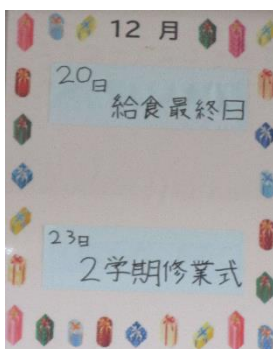 12 月
20日
給食最終日
23日
2学期修業式